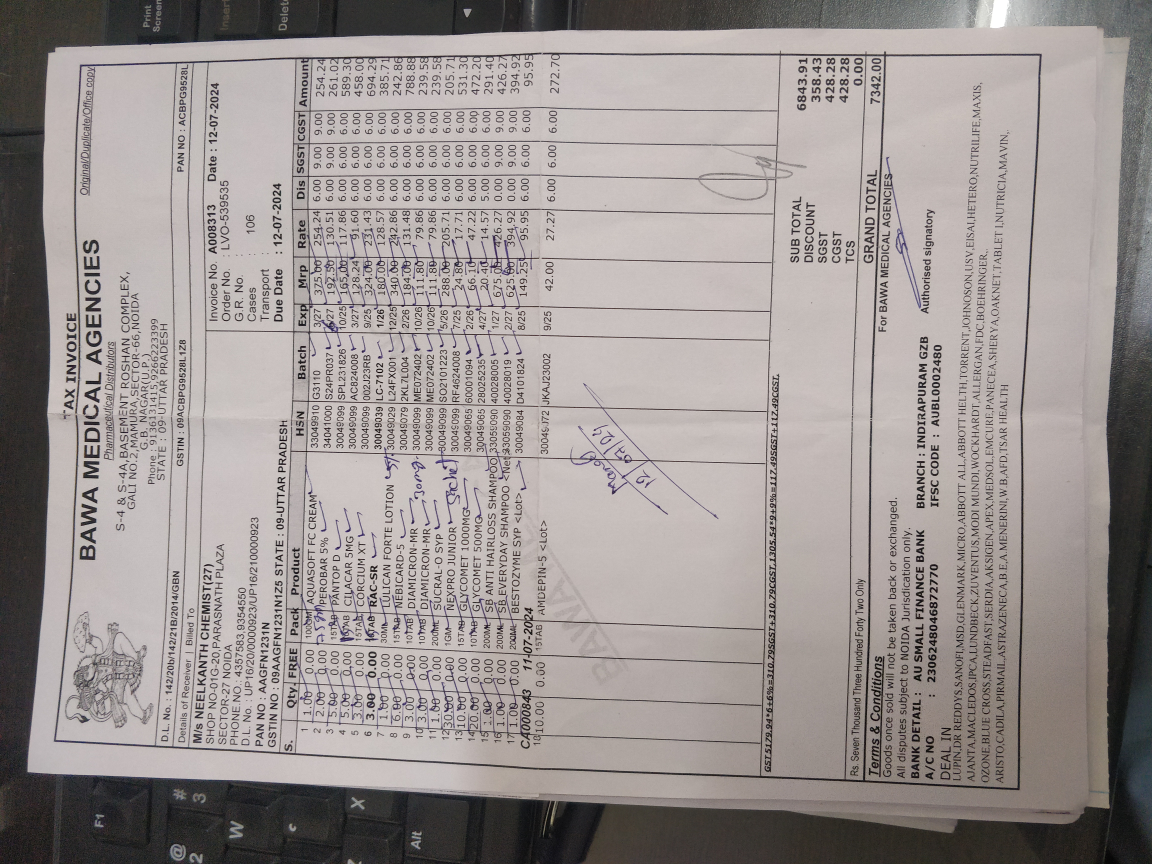 TAX INVOICE
Original/Duplicate/Office copy
BAWA MEDICAL AGENCIES
Pharmaceutical Distributors
S-4 & S-4A, BASEMENT ROSHAN COMPLEX,
GALI NO.2, MAMURA, SECTOR-66, NOIDA
G.B. NAGAR(U.P.)
Phone : 9136131415,9266223399
STATE : 09-UTTAR PRADESH
D.L No. : 142/20b/142/21B/2014/GBN GSTIN : 09ACBPG9528L1Z8 PAN NO : ACBPG9528L
Details of Receiver | Billed To
M/s NEELKANTH CHEMIST(27)
SHOP NO-01G-20,PARASNATH PLAZA
SECTOR-27 NOIDA
PHONE NO.: 4357583,9354550
D.L. No : UP16/20/0000923/UP16/210000923
PAN NO : AAGFN1231N
GSTIN NO : 09AAGFN1231N1Z5 STATE : 09-UTTAR PRADESH
Invoice No. A008313 Date : 12-07-2024
Order No. : LVO-539535
G.R. No. :
Cases : 106
Transport :
Due Date : 12-07-2024
S. Qty. FREE Pack Product HSN Batch Exp. Mrp Rate Dis SGST CGST Amount
1 1.00 0.00 AQUASOFT FC CREAM 33049910 G3110 3/27 375.00 254.24 6.00 9.00 9.00 254.24
2 2.00 0.00 PEROBAR 5% 34041000 S24PR037 192.50 130.51 6.00 9.00 9.00 261.02
3 5.00 0.00 15TAB PANTOP D 30049099 SPL231826 10/25 165.00 117.86 6.00 6.00 6.00 589.30
4 5.00 0.00 CILACAR 5MG 30049099 AC824008 3/27 128.24 91.60 6.00 6.00 6.00 458.00
5 3.00 0.00 15TAB CORCIUM XT 30049099 002J23RB 9/25 324.00 231.43 6.00 6.00 6.00 694.29
6 3.00 0.00 RAC-SR 30049039 LC-7102 1/26 180.00 128.57 6.00 6.00 6.00 385.71
7 1.00 0.00 30ML LULICAN FORTE LOTION 30049029 L24FX001 12/25 340.00 242.86 6.00 6.00 6.00 242.86
8 6.00 0.00 15TAB NEBICARD-5 30049079 2KL7L004 2/26 184.00 131.48 6.00 6.00 6.00 788.88
9 3.00 0.00 10TAB DIAMICRON-MR 30mg 30049099 ME072402 10/26 111.80 79.86 6.00 6.00 6.00 239.58
10 3.00 0.00 10TAB DIAMICRON-MR 30049099 ME072402 10/26 111.80 79.86 6.00 6.00 6.00 239.58
11 1.00 0.00 200ML SUCRAL-O SYP 30049099 SO2101223 5/26 288.00 205.71 6.00 6.00 6.00 205.71
12 30.00 0.00 1GM NEXPRO JUNIOR Sachet 30049099 RF4624008 7/25 24.80 17.71 6.00 6.00 6.00 531.30
13 10.00 0.00 15TAB GLYCOMET 1000MG 30049065 60001094 2/26 66.10 47.22 6.00 6.00 6.00 472.20
14 20.00 0.00 10TAB GLYCOMET 500MG 30049065 28025235 4/27 20.40 14.57 5.00 6.00 6.00 291.40
15 1.00 0.00 200ML SB ANTI HAIRLOSS SHAMPOO 33059090 40028005 1/27 675.00 426.27 0.00 9.00 9.00 426.27
16 1.00 0.00 200ML SB EVERYDAY SHAMPOO <Net> 33059090 40028019 2/27 625.00 394.92 0.00 9.00 9.00 394.92
17 1.00 0.00 200ML BESTOZYME SYP <Lot> 30049084 D4101824 8/25 149.25 95.95 6.00 6.00 6.00 95.95
CA000843 11-07-2024
18 10.00 0.00 15TAB AMDEPIN-5 <Lot> JKAJ23002 9/25 42.00 27.27 6.00 6.00 6.00 272.70
12/07/24
GST:5179.94*6+6%=310.79SGST+310.79CGST,1305.54*9+9%=117.49SGST+117.49CGST,
SUB TOTAL 6843.91
DISCOUNT 358.43
SGST 428.28
CGST 428.28
TCS 0.00
Rs. Seven Thousand Three Hundred Forty Two Only
GRAND TOTAL 7342.00
Terms & Conditions
Goods once sold will not be taken back or exchanged.
All disputes subject to NOIDA Jurisdiction only.
BANK DETAIL : AU SMALL FINANCE BANK BRANCH : INDIRAPURAM GZB
A/C NO : 2306248046872770 IFSC CODE : AUBL0002480
For BAWA MEDICAL AGENCIES
Authorised signatory
DEAL IN
LUPIN,DR REDDYS,SANOFI,MSD,GLENMARK,MICRO,ABBOTT ALL,ABBOTT HELTH,TORRENT,JOHNOSON,USV,EISAI,HETERO,NUTRILIFE,MAXIS,
AJANTA,MACLEODS,IPCA,LUNDBECK,ZUVENTUS,MODI MUNDI,WOCKHARDT,ALLERGAN,FDC,BOEHRINGER,
OZONE,BLUE CROSS,STEADFAST,SERDIA,AKSIGEN,APEX,MEDSOL,EMCURE,PANECEA,SHERYA,OAKNET,TABLET I,NUTRICIA,MAVIN,
ARISTO,CADILA,PIRMAIL,ASTRAZENECA,B.E.A,MENERINI,W.B,AFD,TSAR HEALTH
Print
Screen
Insert
Delete
F1
@
2
#
3
W
X
Alt